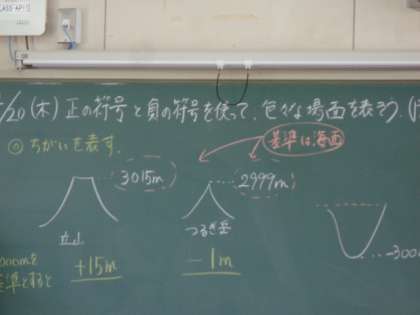 /20(木) 正の符号と負の符号を使って、色々な場面を表そう。
◎ ちがいを表す。
基準は、海面
3015m
2999m
立山
つるぎ岳
-300
000mを
基準とすると
+15m
-1m